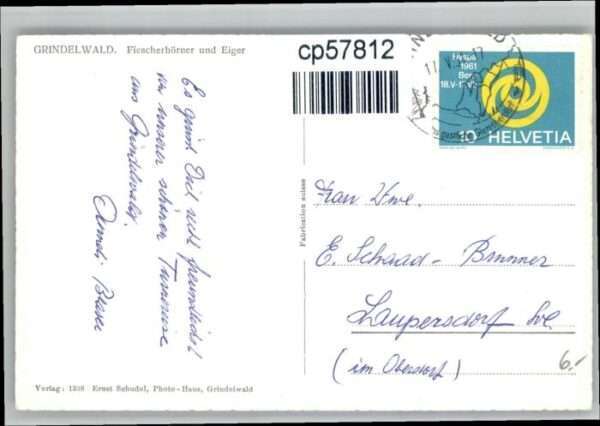 GRINDELWALD. Fiescherhörner und Eiger
cp57812
Hyspa
1961
Bern
18.V-17.VII
10 HELVETIA
Es grüsst Dich recht freundlich
von unserer schönen Turnreise
aus Grindelwald.
Fabrication suisse
Frau Wwe.
E. Schaad-Brunner
Laupersdorf
(im Oberdorf)
6.-
Verlag: 1308 Ernst Schudel, Photo-Haus, Grindelwald